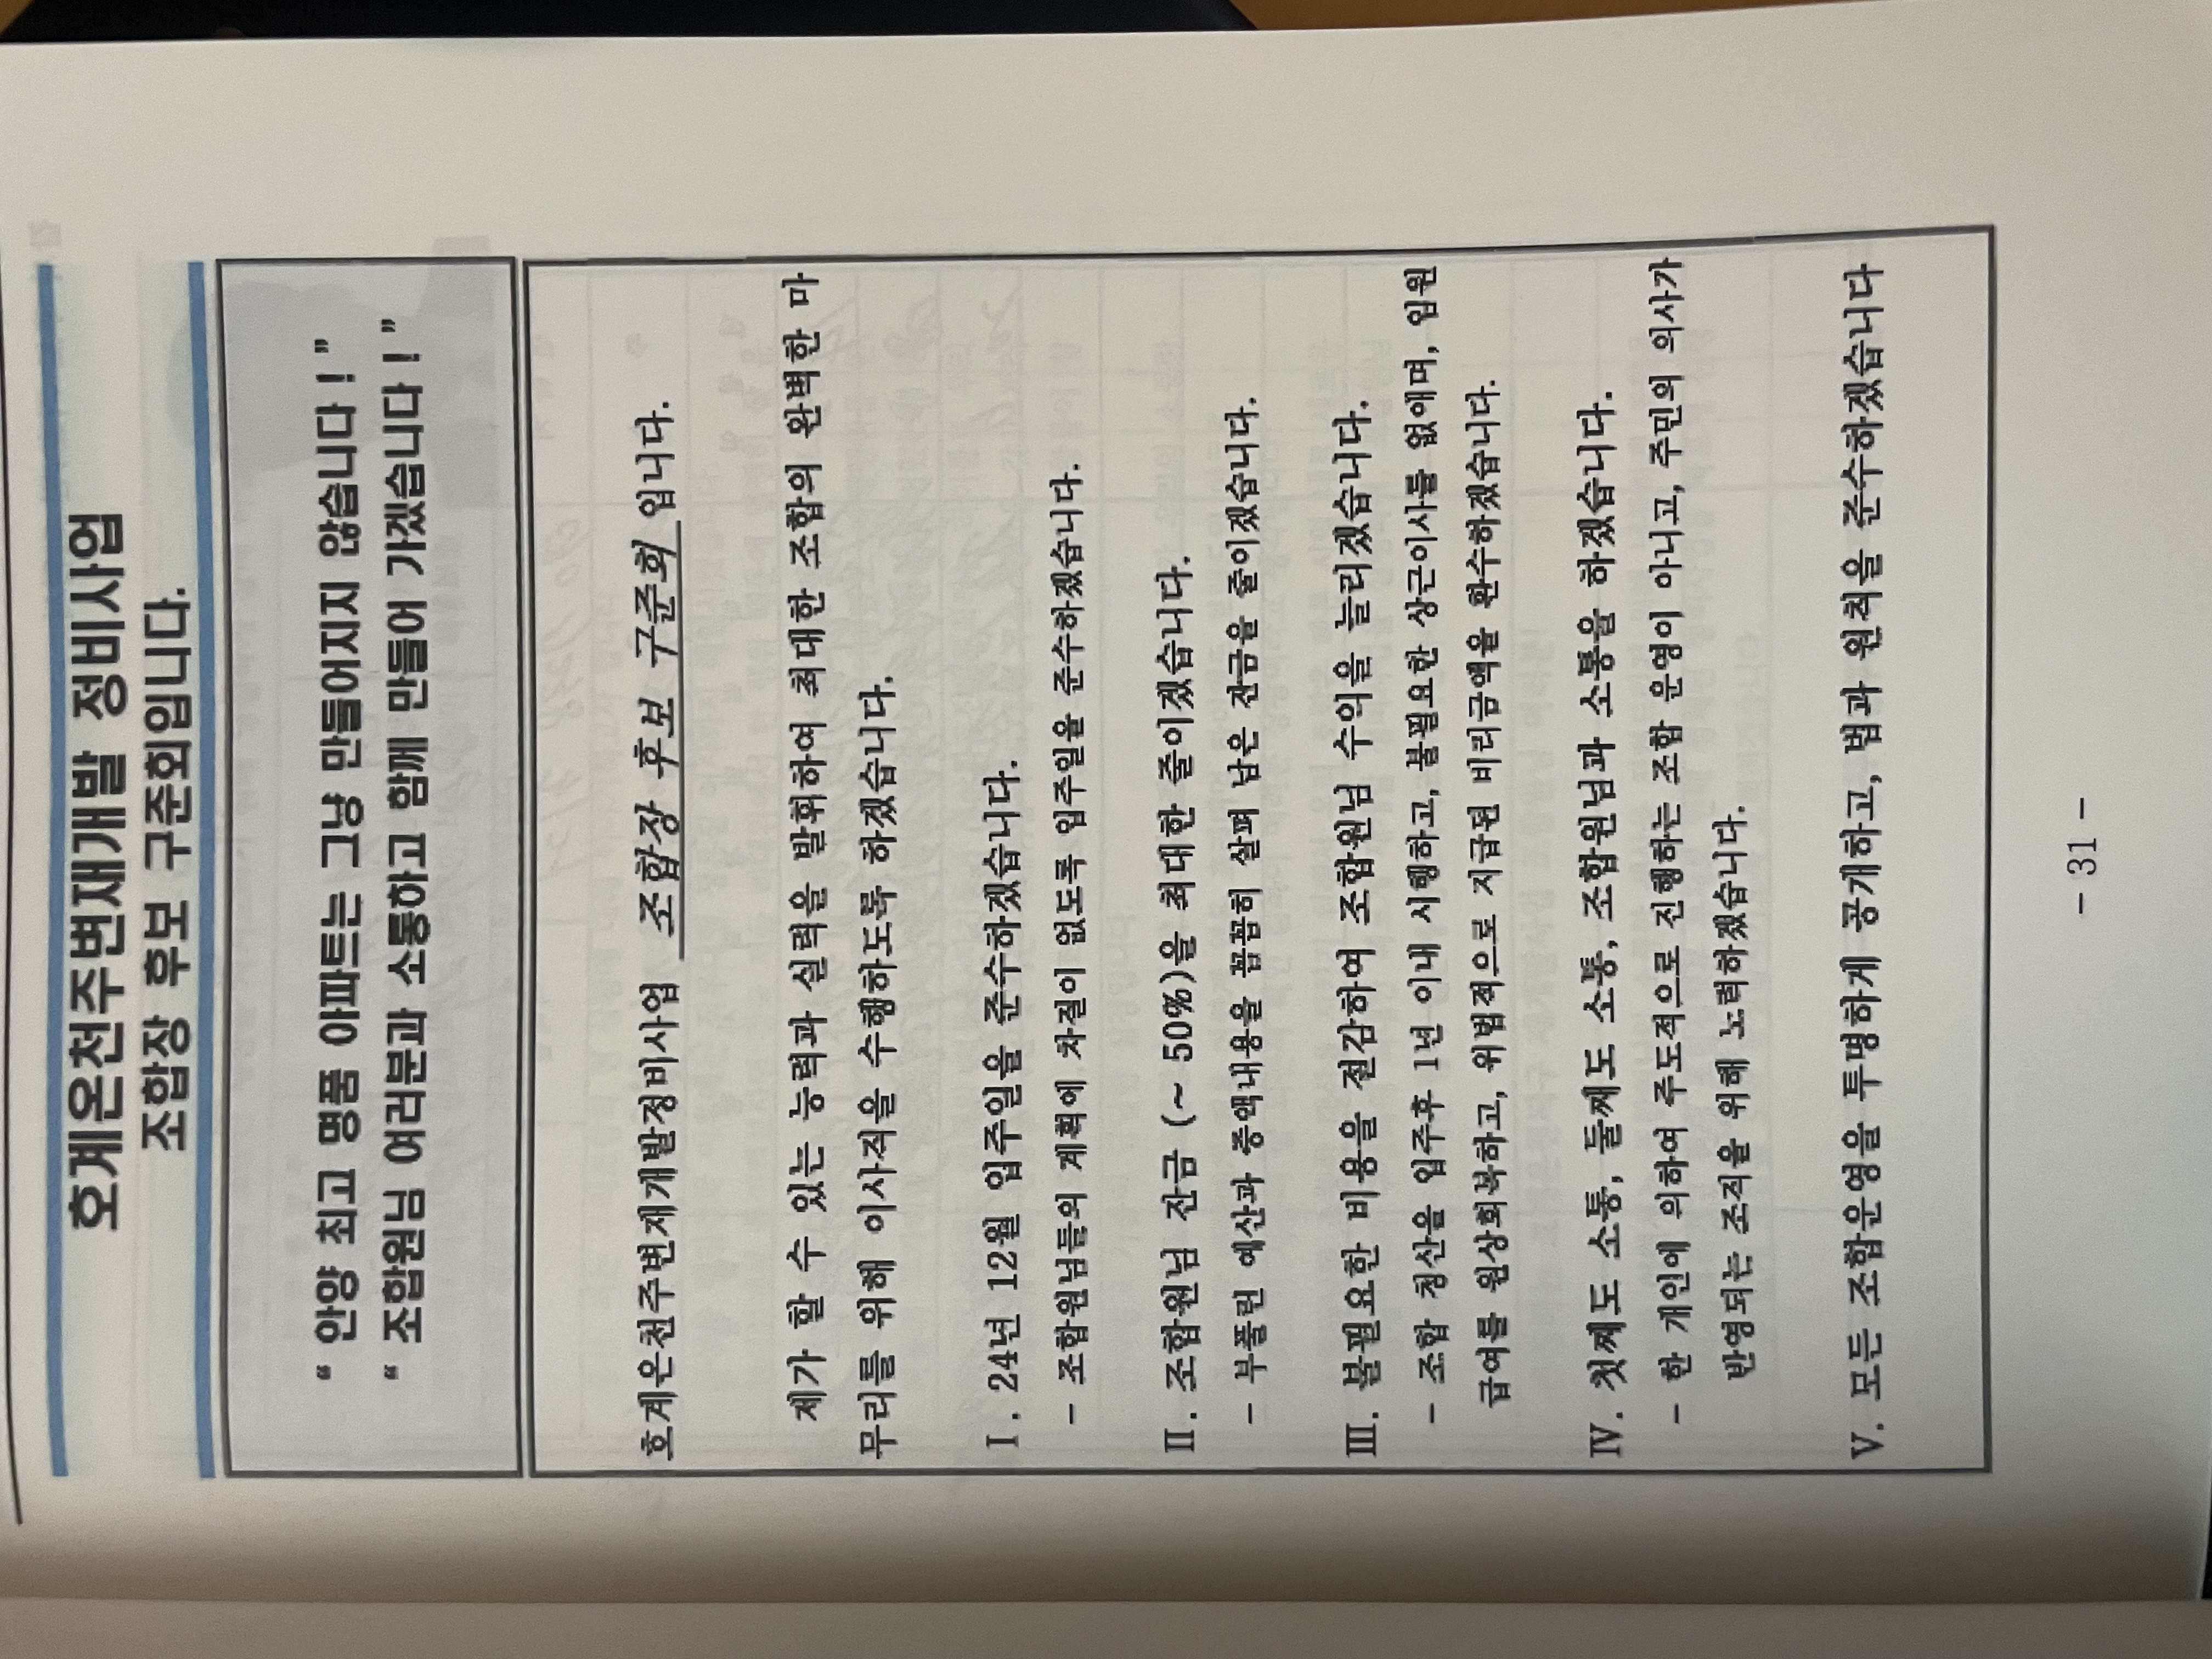 호계온천주변재개발 정비사업
조합장 후보 구준회입니다.
“ 안양 최고 명품 아파트는 그냥 만들어지지 않습니다 ! ”
“ 조합원님 여러분과 소통하고 함께 만들어 가겠습니다 ! ”
호계온천주변재개발정비사업 조합장 후보 구준회 입니다.
제가 할 수 있는 능력과 실력을 발휘하여 최대한 조합의 완벽한 마
무리를 위해 이사직을 수행하도록 하겠습니다.
Ⅰ. 24년 12월 입주일을 준수하겠습니다.
- 조합원님들의 계획에 차질이 없도록 입주일을 준수하겠습니다.
Ⅱ. 조합원님 잔금 (~ 50%)을 최대한 줄이겠습니다.
- 부풀린 예산과 증액내용을 꼼꼼히 살펴 남은 잔금을 줄이겠습니다.
Ⅲ. 불필요한 비용을 절감하여 조합원님 수익을 늘리겠습니다.
- 조합 청산을 입주후 1년 이내 시행하고, 불필요한 상근이사를 없애며, 임원
급여를 원상회복하고, 위법적으로 지급된 비리금액을 환수하겠습니다.
Ⅳ. 첫째도 소통, 둘째도 소통, 조합원님과 소통을 하겠습니다.
- 한 개인에 의하여 주도적으로 진행하는 조합 운영이 아니고, 주민의 의사가
반영되는 조직을 위해 노력하겠습니다.
Ⅴ. 모든 조합운영을 투명하게 공개하고, 법과 원칙을 준수하겠습니다
- 31 -